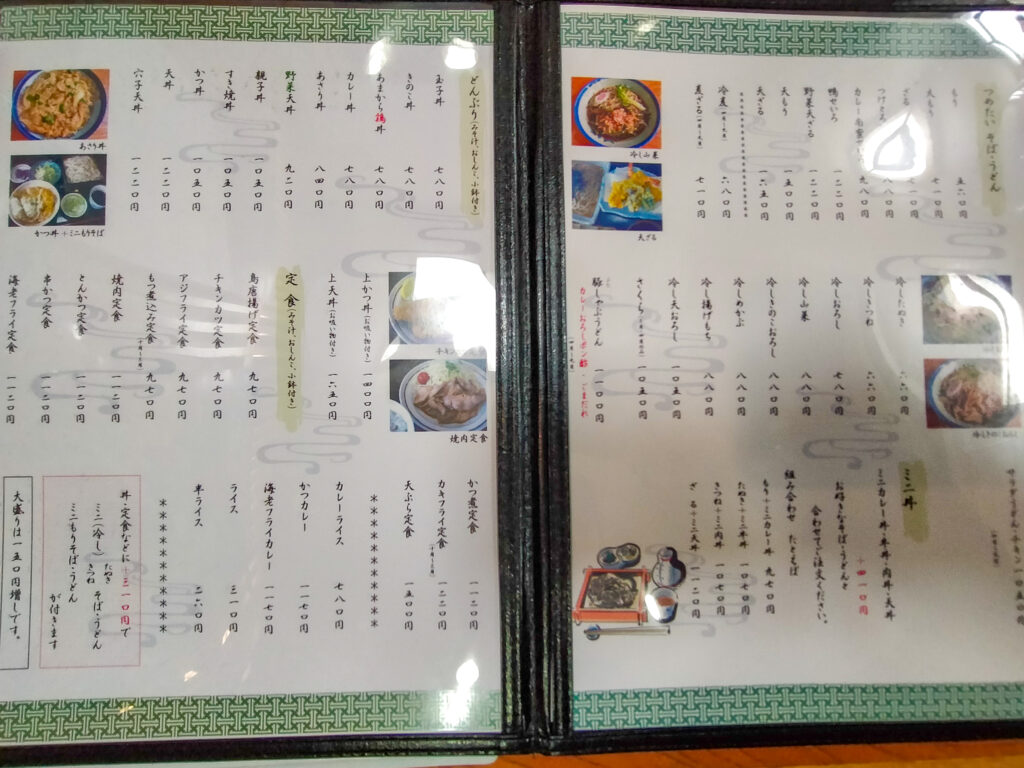 つめたいそば・うどん
もり 五六〇円
大もり 七一〇円
ざる
つけとろ 八八〇円
鴨せいろ 一二二〇円
野菜天ざる 一二二〇円
天もり 一五〇〇円
天ざる 一六五〇円
冷煮 六八〇円
煮ざる 七一〇円
冷し山菜
天ざる
冷したぬき 六六〇円
冷しきつね 六六〇円
冷しおろし 八八〇円
冷し山菜 八八〇円
冷しきのこおろし 八八〇円
冷しめかぶ 八八〇円
冷し揚げもち 八八〇円
冷し天おろし 一〇五〇円
さくら 一〇五〇円
豚しゃぶうどん 一一〇〇円
カレーおろしポン酢・ごまだれ
サラダうどん・チキン 一〇五〇円
ミニ丼
ミニカレー丼・牛丼・肉丼・天丼
＋四一〇円
お好きなそば・うどんと
合わせてご注文ください。
組み合わせ たとえば
もり＋ミニカレー丼 九七〇円
たぬき＋ミニ牛丼 一〇七〇円
きつね＋ミニ肉丼 一〇七〇円
ざる＋ミニ天丼 一一二〇円
どんぶり(みそ汁、おしんこ、小鉢付き)
玉子丼 七八〇円
きのこ丼 七八〇円
あまから鶏丼 七八〇円
カレー丼 七八〇円
あさり丼 八四〇円
野菜天丼 九二〇円
親子丼 一〇五〇円
すき焼丼 一〇五〇円
かつ丼 一〇五〇円
天丼 一二二〇円
穴子天丼 一二二〇円
あさり丼
かつ丼＋ミニもりそば
上かつ丼(お吸い物付き) 一四〇〇円
上天丼(お吸い物付き) 一六五〇円
定食(みそ汁、おしんこ、小鉢付き)
鳥唐揚げ定食 九七〇円
チキンカツ定食 九七〇円
アジフライ定食 九七〇円
もつ煮込み定食 九七〇円
焼肉定食 一一二〇円
とんかつ定食 一一二〇円
串かつ定食 一一二〇円
海老フライ定食 一一二〇円
焼肉定食
かつ煮定食 一一二〇円
カキフライ定食 一一二〇円
天ぷら定食 一五〇〇円
カレーライス 七八〇円
かつカレー 一一七〇円
海老フライカレー 一一七〇円
ライス 三一〇円
半ライス 二六〇円
丼・定食などに＋三一〇円で
ミニ(冷し)たぬき きつね そば・うどん
ミニもりそば・うどん
が付きます
大盛りは一五〇円増しです。